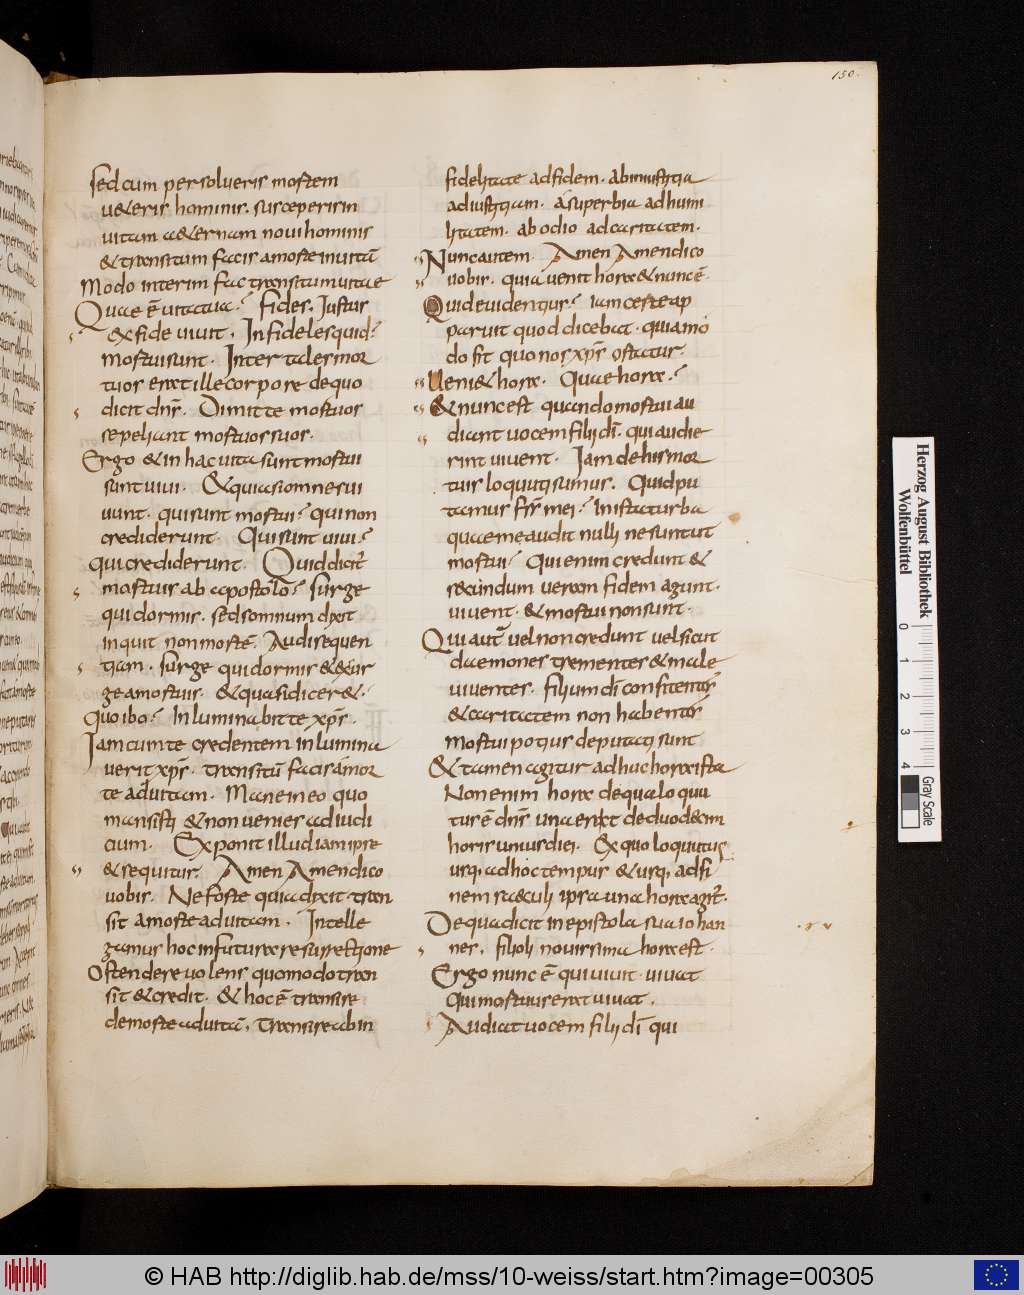 150.
sed cum persolueris mortem
ueteris hominis. susceperis in
uitam aeternam noui hominis
& transitum facis a morte in uitā
Modo interim fac transitum uitae
Quae ē uita tua? fides. Iustus
ex fide uiuit. Infideles quid?
mortui sunt. Inter tales mor
tuos erat ille corpore de quo
dicit dn̄s. Dimitte mortuos
sepeliant mortuos suos.
Ergo & in hac uita sunt mortui
sunt uiui. & quasi omnes ui
uunt. qui sunt mortui? qui non
crediderunt. Qui sunt uiui?
qui crediderunt. Quid dicit̄
mortuis ab apostolo? surge
qui dormis. sed somnum dixit
inquit non mortē. Audi sequen
tiam. surge qui dormis & exur
ge a mortuis. & quasi diceret.
quo ibo? Inluminabit te xp̄s.
Iam cum te credentem inlumina
uerit xp̄s. transitū facis a mor
te ad uitam. Mane in eo quo
transisti & non uenies ad iudi
cium. Exponit illud iam ipse
& sequitur. Amen Amen dico
uobis. Ne forte quia dixit. tran
sit a morte ad uitam. Intelle
gamus hoc in futura resurrectione
Ostendere uolens quomodo tran
sit & credit. & hoc ē transire
de morte ad uitā. Transire ab in
fidelitate ad fidem. ab iniustitia
ad iustitiam. a superbia ad humi
litatem. ab odio ad caritatem.
Nunc autem. Amen Amen dico
uobis. quia uenit hora & nunc ē.
Quid euidentius? iam certe ap
paruit quod dicebat. quia mo
do fit quo nos xp̄s ortatur.
Ueniet hora. Quae hora?
& nunc est quando mortui au
diant uocem filii dī. qui audie
rint uiuent. Iam de his mor
tuis loquuti sumus. Quid pu
tamus fr̄s mei? In ista turba
quae me audit nulli ne sunt ut
mortui? Qui enim credunt &
secundum ueram fidem agunt.
uiuent. & mortui non sunt.
Qui aut̄ uel non credunt uel sicut
daemones trementes & male
uiuentes. filium dī confitentes
& caritatem non habentes
mortui potius deputati sunt
& tamen agitur adhuc hora ista
Non enim hora de qua loquu
tur ē dn̄s una erit de duodecim
horis unius diei. Ex quo loquutus
usq; ad hoc tempus & usq; ad fi
nem saeculi ipsa una hora agit̄.
De qua dicit in epistola sua iohan
nes. filioli nouissima hora est.
Ergo nunc ē qui uiuit. uiuat
qui mortuus erat uiuat.
Audiat uocem filii dī qui
Herzog August Bibliothek
Wolfenbüttel
0 1 2 3 4
Gray Scale
© HAB http://diglib.hab.de/mss/10-weiss/start.htm?image=00305